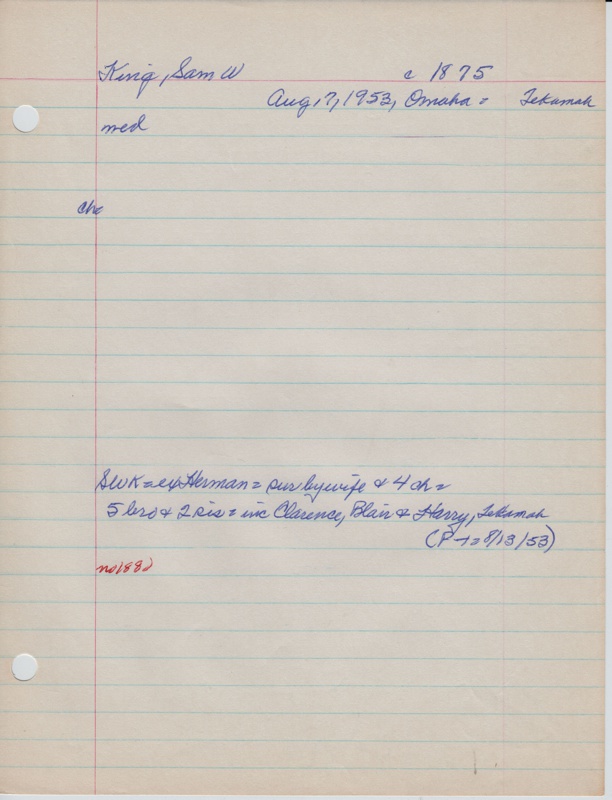 King, Sam W c 1875
Aug 17, 1953, Omaha = Tekamah
med
ch=
SWK = ex Herman = sur by wife & 4 ch =
5 bro & 2 sis = inc Clarence, Blair & Harry, Tekamah
(P-T= 8/13/53)
no 1880